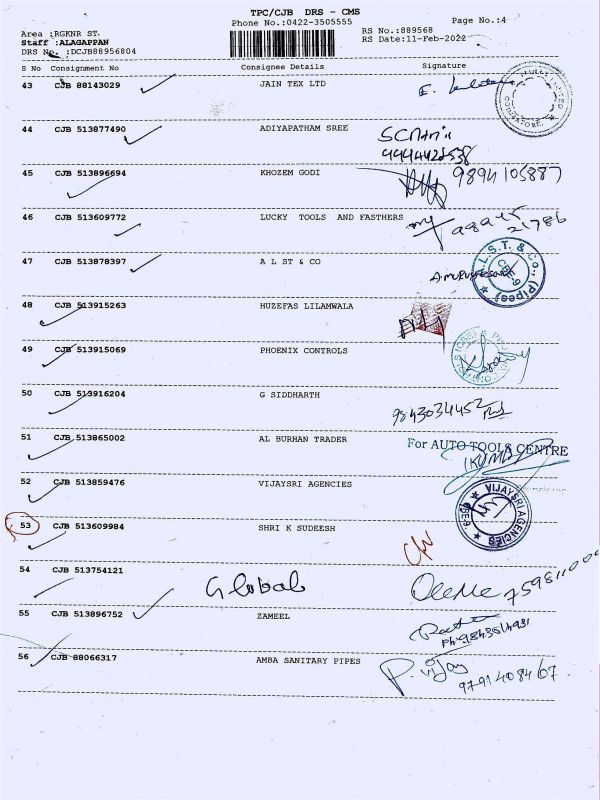 TPC/CJB DRS - CMS
Phone No.:0422-3505555
Page No.:4
Area :RGKNR ST.
RS No.:889568
Staff :ALAGAPPAN
RS Date:11-Feb-2022
DRS No. :DCJB88956804
S No Consignment No Consignee Details Signature
43 CJB 88143029 JAIN TEX LTD
44 CJB 513877490 ADIYAPATHAM SREE
45 CJB 513896694 KHOZEM GODI 9894105887
46 CJB 513609772 LUCKY TOOLS AND FASTHERS
21786
47 CJB 513878397 A L ST & CO
L.S.T. & Co., (Pipes)
CBE-9
48 CJB 513915263 HUZEFAS LILAMWALA
49 CJB 513915069 PHOENIX CONTROLS
50 CJB 513916204 G SIDDHARTH
9843034452
51 CJB 513865002 AL BURHAN TRADER For AUTO TOOLS CENTRE
52 CJB 513859476 VIJAYSRI AGENCIES
VIJAYSRI AGENCIES
53 CJB 513609984 SHRI K SUDEESH
54 CJB 513754121 Global
55 CJB 513896752 ZAMEEL
56 CJB 88066317 AMBA SANITARY PIPES P. Vijay
9791408467